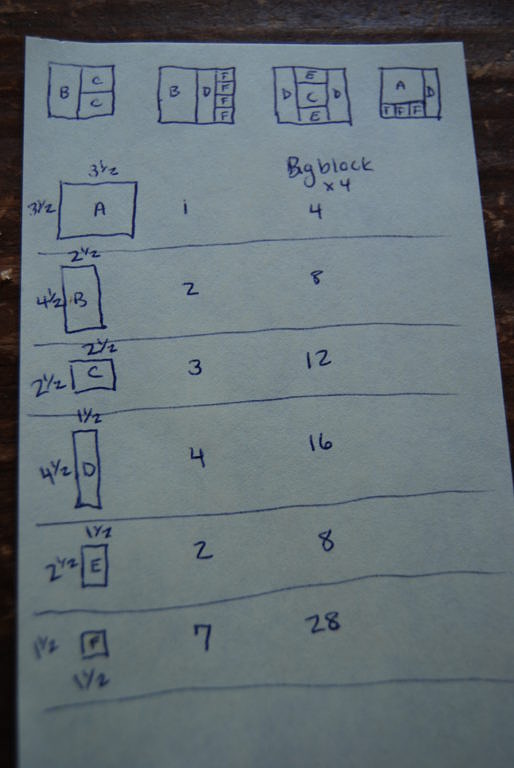 B C C B D F F F F D E C E D A D F F F
3½ Big block
x 4
3½ A 1 4
2½
4½ B 2 8
2½
2½ C 3 12
1½
4½ D 4 16
1½
2½ E 2 8
1½ F 7 28
1½